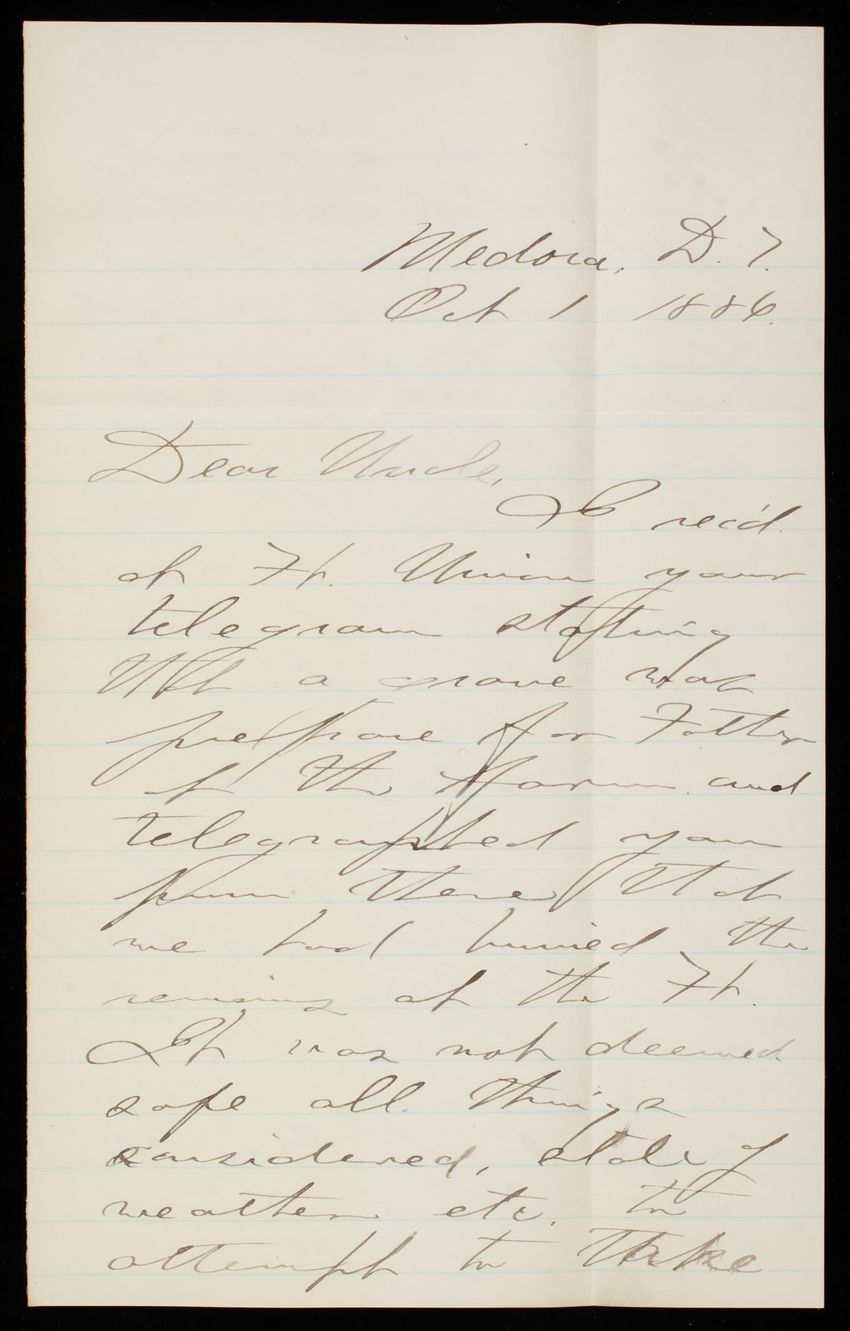 Medora, D. T.
Oct 1 1886.
Dear Uncle,
I rec'd
at Ft. Union your
telegram stating
that a grave was
prepare for Father
at the farm and
telegraphed you
from there that
we had buried the
remains at the Ft.
It was not deemed
safe all things
considered, state of
weather etc. to
attempt to take